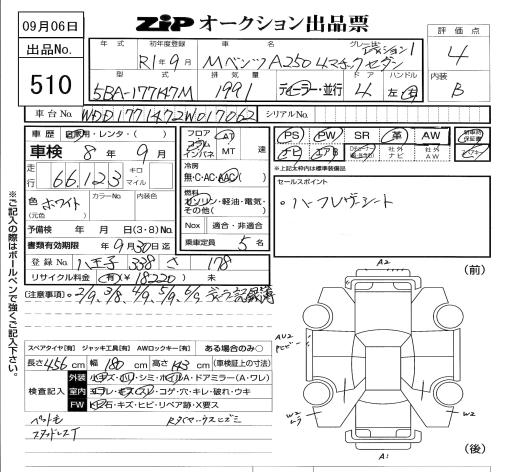 09月06日
ZIP オークション出品票
出品No.
510
年式 初年度登録 車名 グレード
R1年9月 Mベンツ A250 4マチックセダン エディション1
型式 排気量 ドア ハンドル
5BA-177147M 1991 ディーラー・並行 4 左・右
評価点
4
内装
B
車台No. WDD1771472W017062 シリアルNo.
車歴 自家用・レンタ・( )
車検 8年 9月
走行 66,123 キロ マイル
色 ホワイト (元色) カラーNo. 内装色
予備検 年 月 日 (3・8) No.
書類有効期限 9月30日迄
登録No. 八王子 338 さ 178
リサイクル料金 有(¥18220) 未
フロア コラム インパネ AT MT 速
冷房 無・C・AC・AAC( )
燃料 ガソリン・軽油・電気・その他( )
Nox 適合・非適合
乗車定員 5名
PS PW SR 革 AW
ナビ 社外ナビ 社外AW
※上記太枠内は標準装備品
セールスポイント
ハーフレザーシート
(注意事項) 2/9. 3/8. 4/9. 5/9. 6/9 ディーラー記録簿
スペアタイヤ[有] ジャッキ工具[有] AWロックキー[有] ある場合のみ○
長さ 456 cm 幅 180 cm 高さ 143 cm (車検証上の寸法)
検査記入
外装 小キズ・凹・シミ・ホイルA・ドアミラー(A・ワレ)
室内 ヨゴレ・キズ・スレ・コゲ・穴・キレ・破れ・ウキ
FW 飛石・キズ・ヒビ・リペア跡・X要ス
ペット毛
スタッドレスT
※ご記入の際はボールペンで強くご記入下さい。
(前)
A2
AU2
W2
W2
A1
(後)